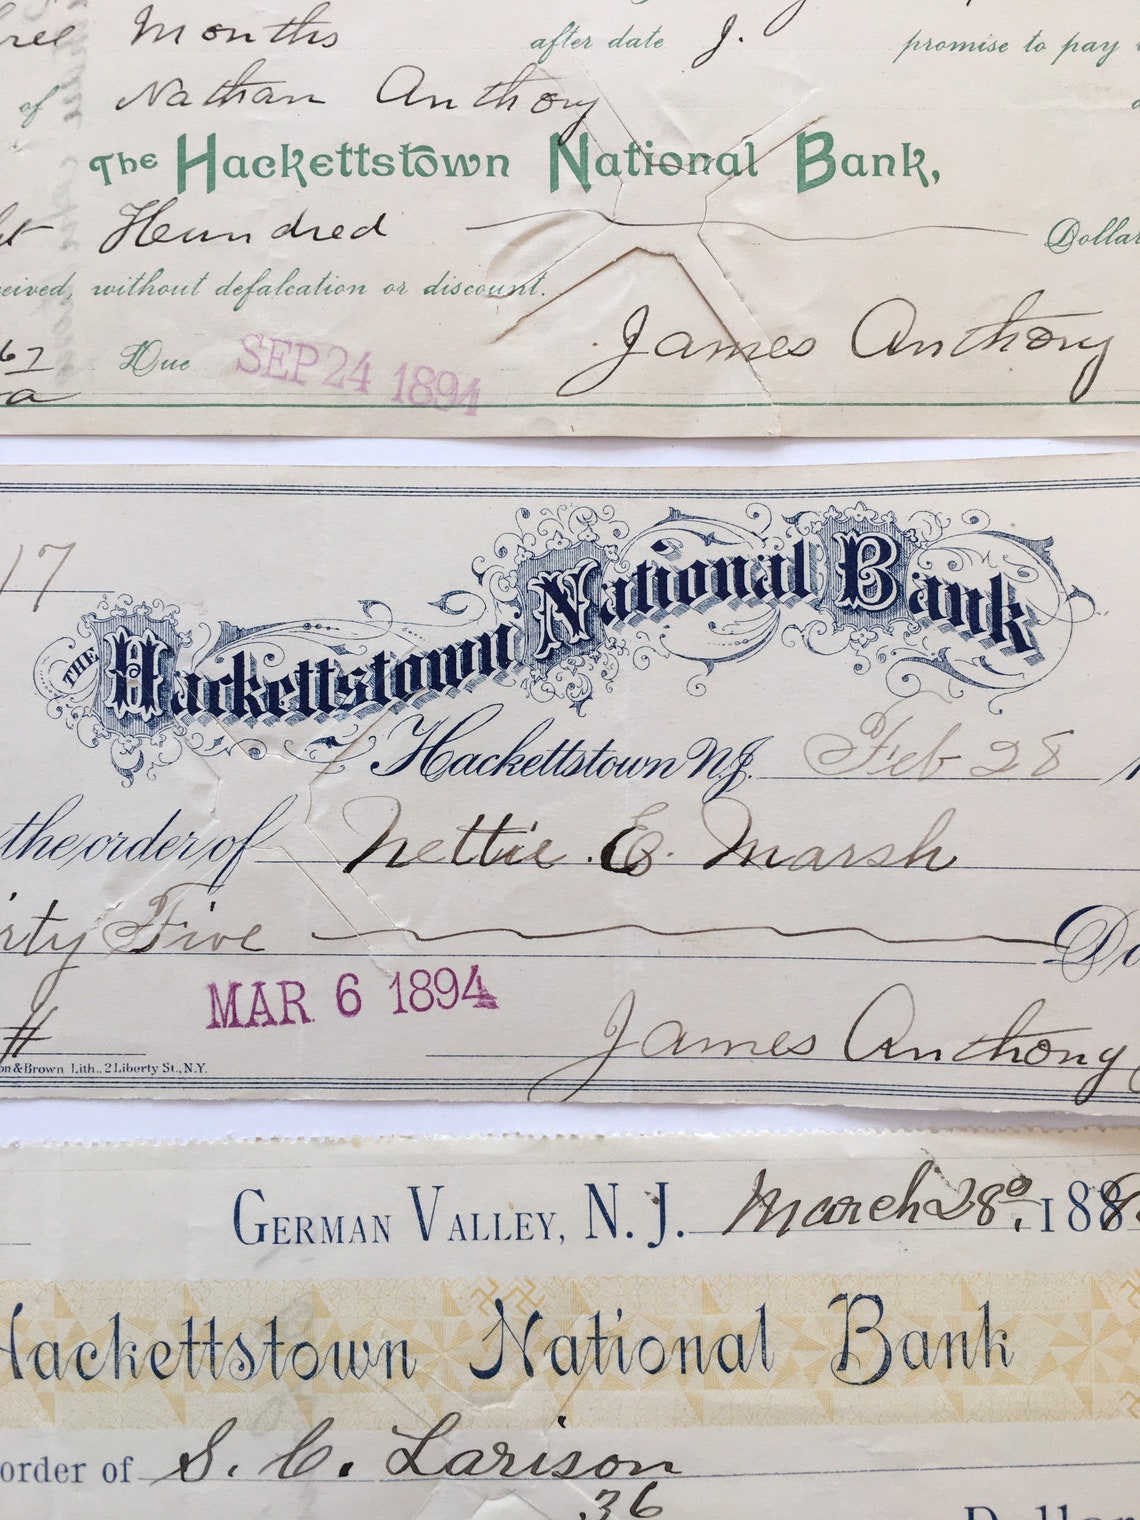 Months after date J. promise to pay
of Nathan Anthony
The Hackettstown National Bank,
Hundred Dollar
without defalcation or discount.
67 Due SEP 24 1894 James Anthony
a
17
THE Hackettstown National Bank
Hackettstown N.J. Feb 28
the order of Nettie E. Marsh
rty Five Do
MAR 6 1894
James Anthony
on & Brown Lith., 2 Liberty St., N.Y.
GERMAN VALLEY, N. J. March 28, 188
Hackettstown National Bank
order of S. C. Larison
36
Dollar